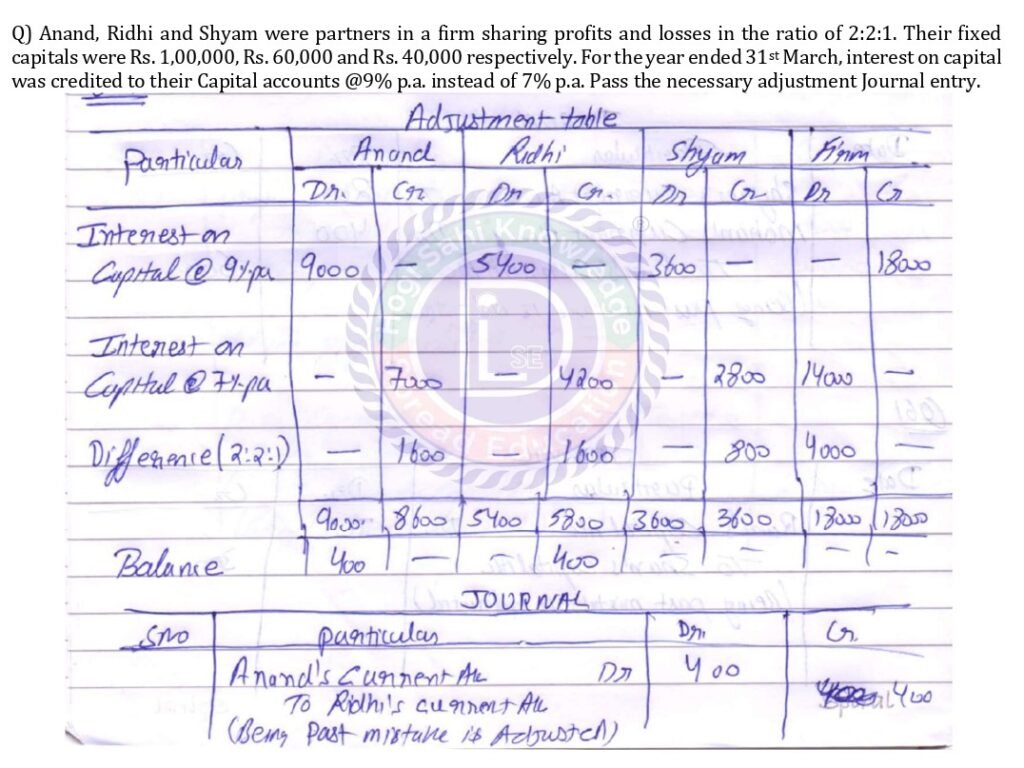 Q) Anand, Ridhi and Shyam were partners in a firm sharing profits and losses in the ratio of 2:2:1. Their fixed
capitals were Rs. 1,00,000, Rs. 60,000 and Rs. 40,000 respectively. For the year ended 31st March, interest on capital
was credited to their Capital accounts @9% p.a. instead of 7% p.a. Pass the necessary adjustment Journal entry.
Adjustment table
Particular Anand Ridhi Shyam Firm
Dr. Cr Dr Cr. Dr Cr Dr Cr
Interest on
Capital @ 9%pa 9000 — 5400 — 3600 — — 18000
Interest on
Capital @ 7%pa — 7000 — 4200 — 2800 14000 —
Difference (2:2:1) — 1600 — 1600 — 800 4000 —
9000 8600 5400 5800 3600 3600 18000 18000
Balance 400 — — 400 — — — —
JOURNAL
SNo particular Dr. Cr.
Anand's Current A/c Dr 400
To Ridhi's current A/c 400
(Being Past mistake is Adjusted)
Hogi Sahi Knowledge
Spread Education
SE